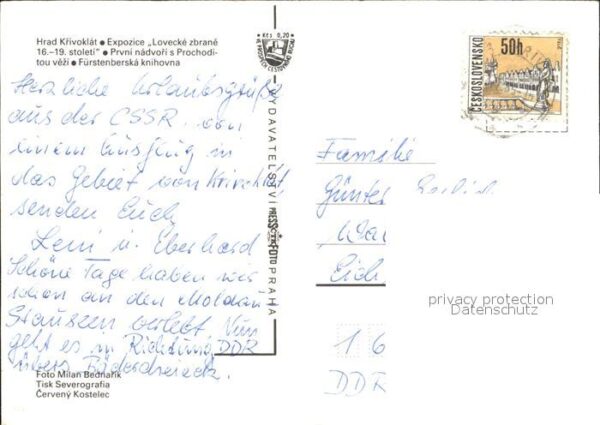 Hrad Křivoklát ● Expozice „Lovecké zbraně
16.–19. století" ● První nádvoří s Prochodi-
tou věží ● Fürstenberská knihovna
Kčs 0,20
50h
ČESKOSLOVENSKO
Herzliche Urlaubsgrüße
aus der CSSR. von
einem Ausflug in
das Gebiet von Krivoklat,
senden Euch
Leni u. Eberhard
Schöne Tage haben wir
schon an den Moldau
Stauseen verlebt. Nun
geht es in Richtung DDR
übers Bäderdreieck.
VYDAVATELSTVÍ PRESSFOTO PRAHA
Familie
Günter
Eich
privacy protection
Datenschutz
16
DDR
Foto Milan Bednařík
Tisk Severografia
Červený Kostelec